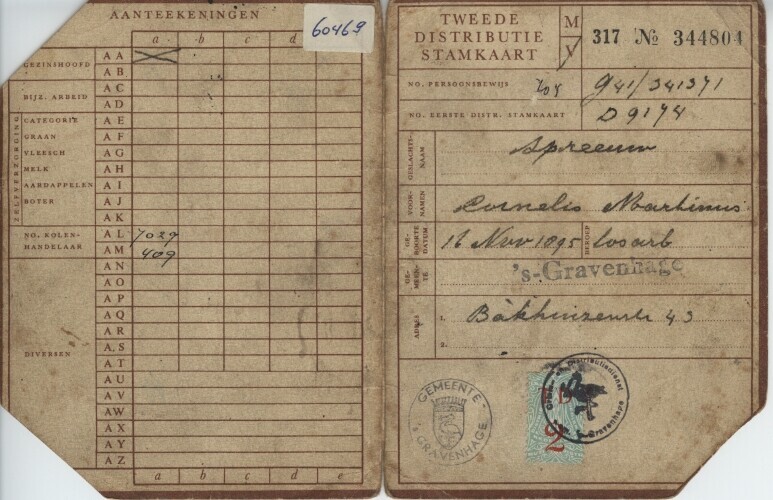 AANTEEKENINGEN
60469
a b c d
GEZINSHOOFD
A A
A B
BIJZ. ARBEID
A C
A D
ZELFVERZORGING
CATEGORIE
A E
GRAAN
A F
VLEESCH
A G
MELK
A H
AARDAPPELEN
A I
BOTER
A J
A K
NO. KOLEN-
HANDELAAR
A L 7029
A M 409
A N
A O
A P
A Q
A R
DIVERSEN
A S
A T
A U
A V
A W
A X
A Y
A Z
a b c d e
TWEEDE
DISTRIBUTIE
STAMKAART
M
V
317 № 344804
NO. PERSOONSBEWIJS g41/341371
NO. EERSTE DISTR. STAMKAART D 9174
GESLACHTS-
NAAM
Spreeuw
VOOR-
NAMEN
Cornelis Martinus
GE-
BOORTE
DATUM
16 Nov 1895
BEROEP
los arb
GE-
MEEN-
TE
's-Gravenhage
ADRES
1. Bakhuizenstr 43
2.
GEMEENTE -
's GRAVENHAGE
2
Distributiedienst
's Gravenhage